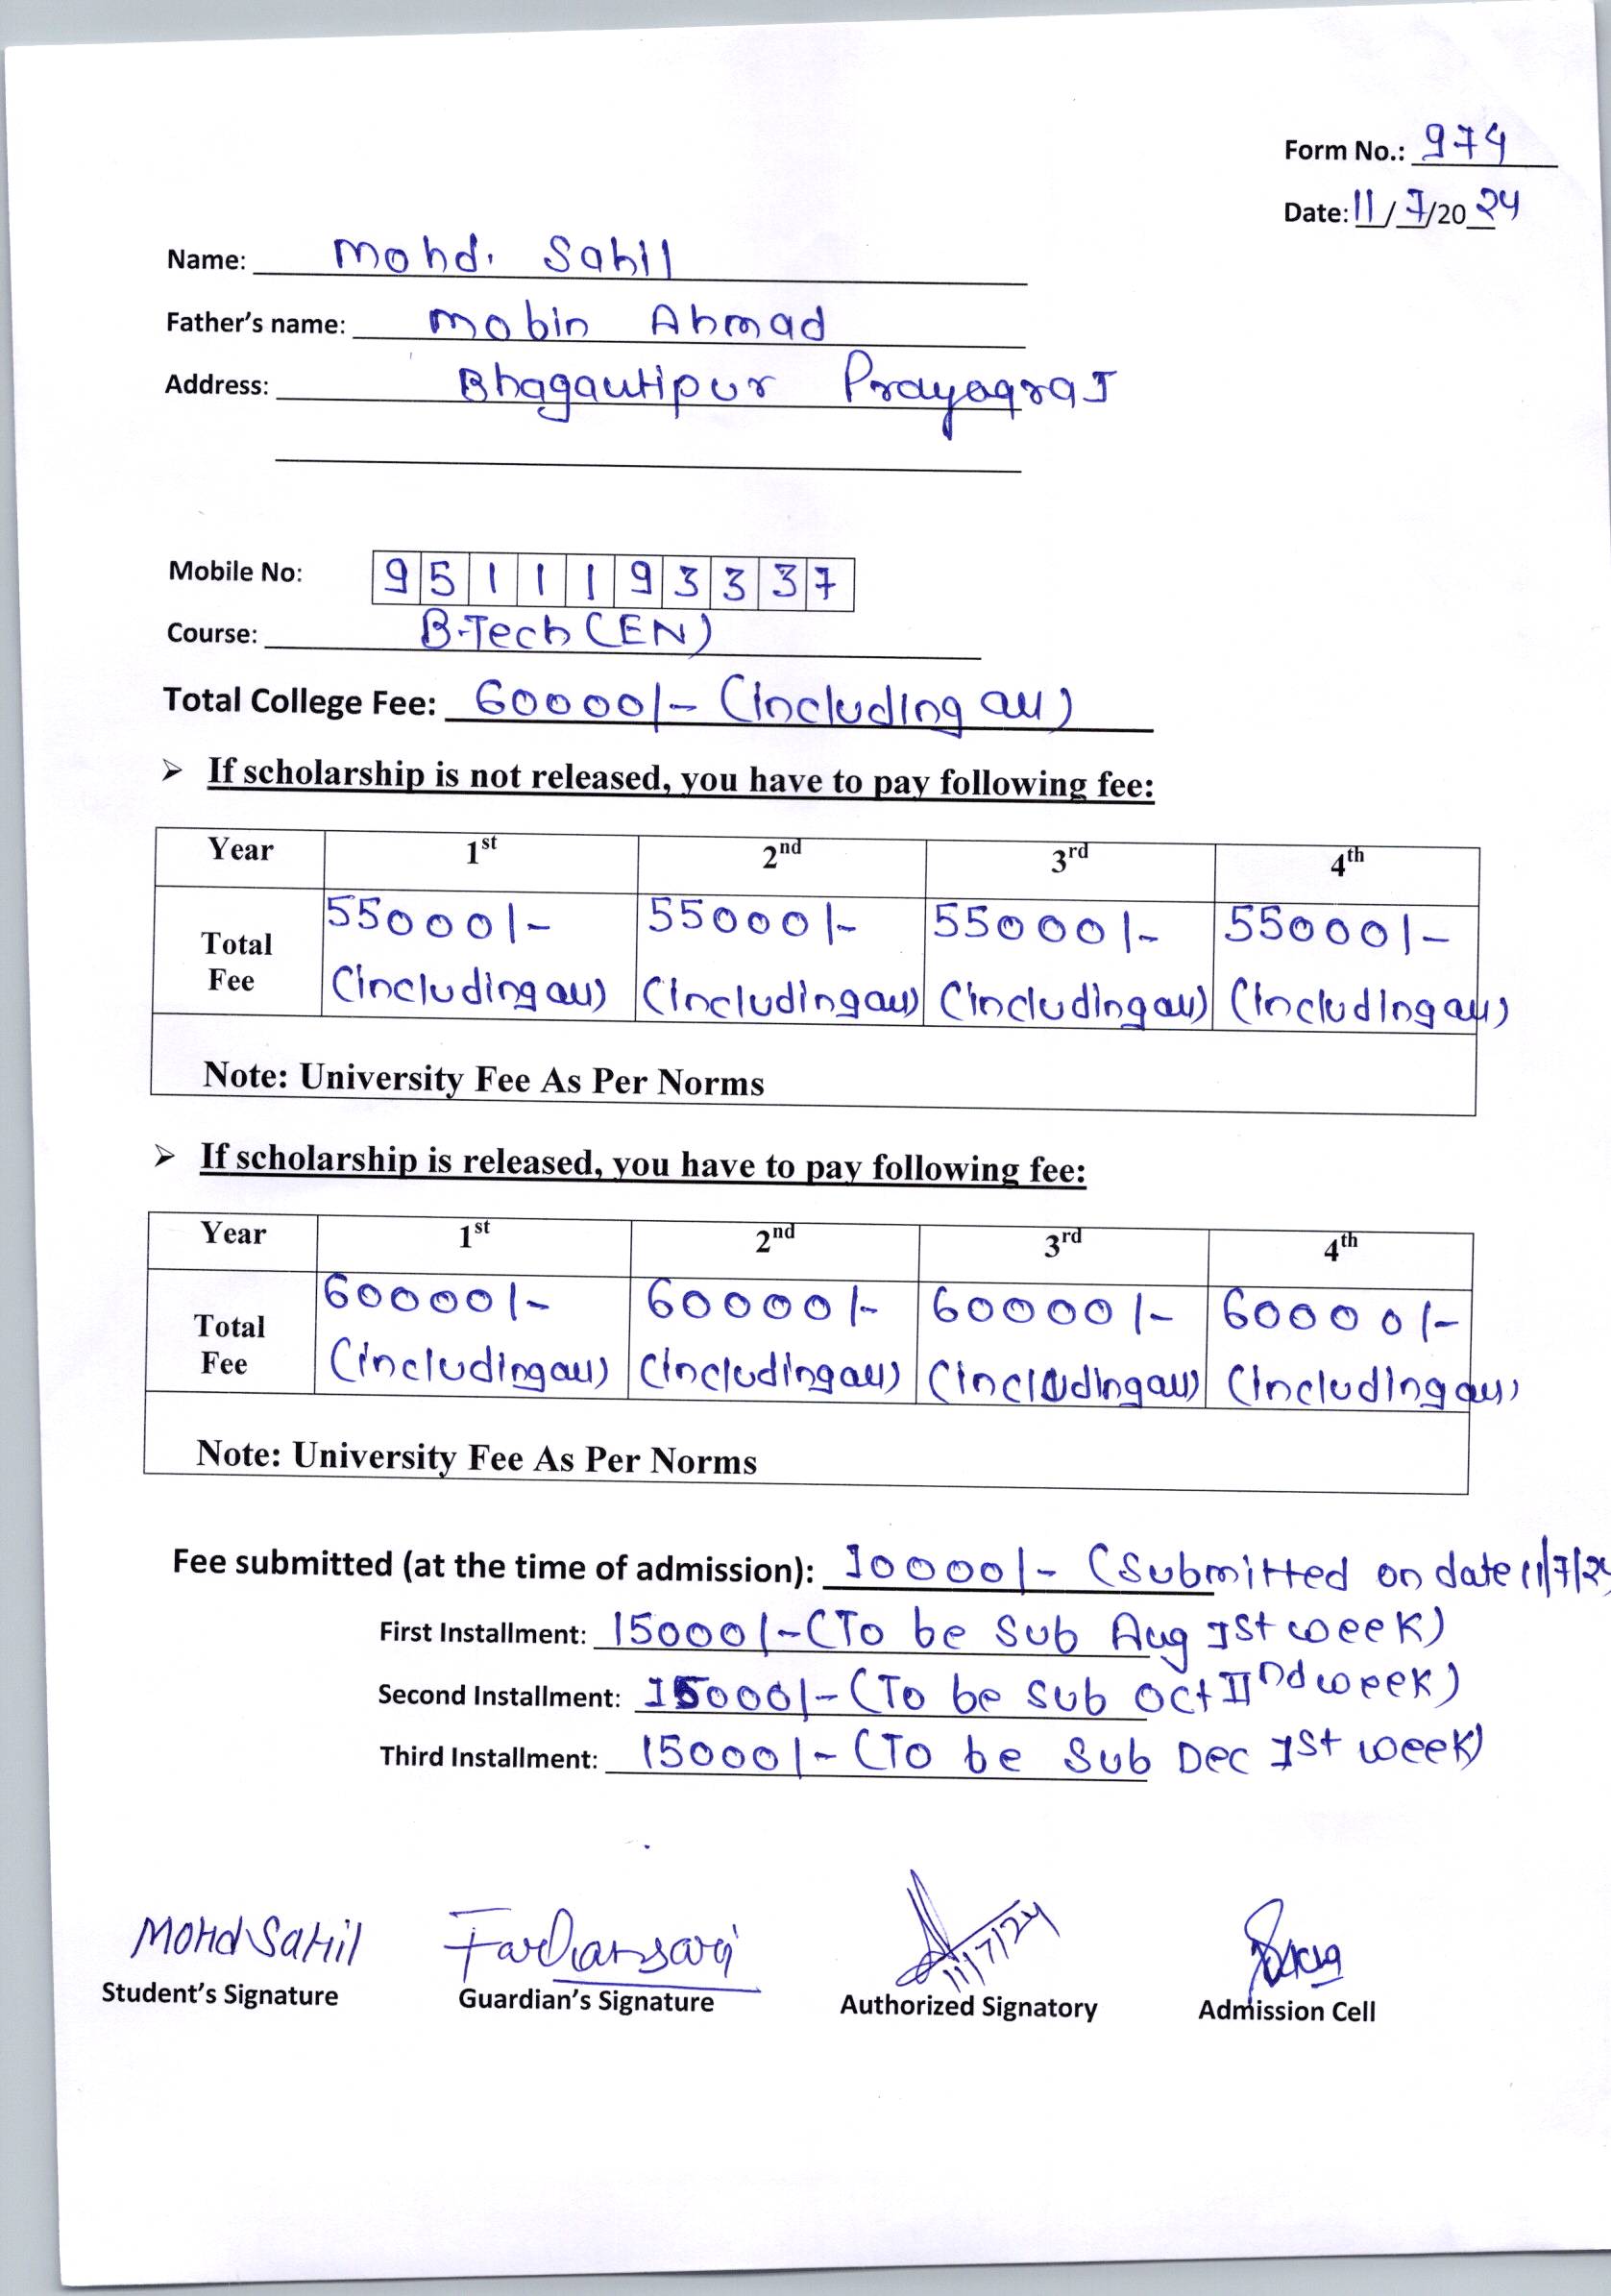 Form No.: 974
Date: 11/7/2024
Name: Mohd. Sahil
Father's name: Mobin Ahmad
Address: Bhagautipur PrayagraJ
Mobile No: 9511193337
Course: B.Tech (EN)
Total College Fee: 60000/- (Including all)
➢ If scholarship is not released, you have to pay following fee:
Year 1st 2nd 3rd 4th
Total Fee 55000/- 55000/- 55000/- 55000/-
(including all) (Including all) (including all) (Including all)
Note: University Fee As Per Norms
➢ If scholarship is released, you have to pay following fee:
Year 1st 2nd 3rd 4th
Total Fee 60000/- 60000/- 60000/- 60000/-
(including all) (including all) (including all) (Including all)
Note: University Fee As Per Norms
Fee submitted (at the time of admission): 10000/- (Submitted on date 11/7/24
First Installment: 15000/- (To be Sub Aug Ist week)
Second Installment: 15000/- (To be Sub Oct IInd week)
Third Installment: 15000/- (To be Sub Dec Ist week)
Mohd Sahil 11/7/24
Student's Signature Guardian's Signature Authorized Signatory Admission Cell